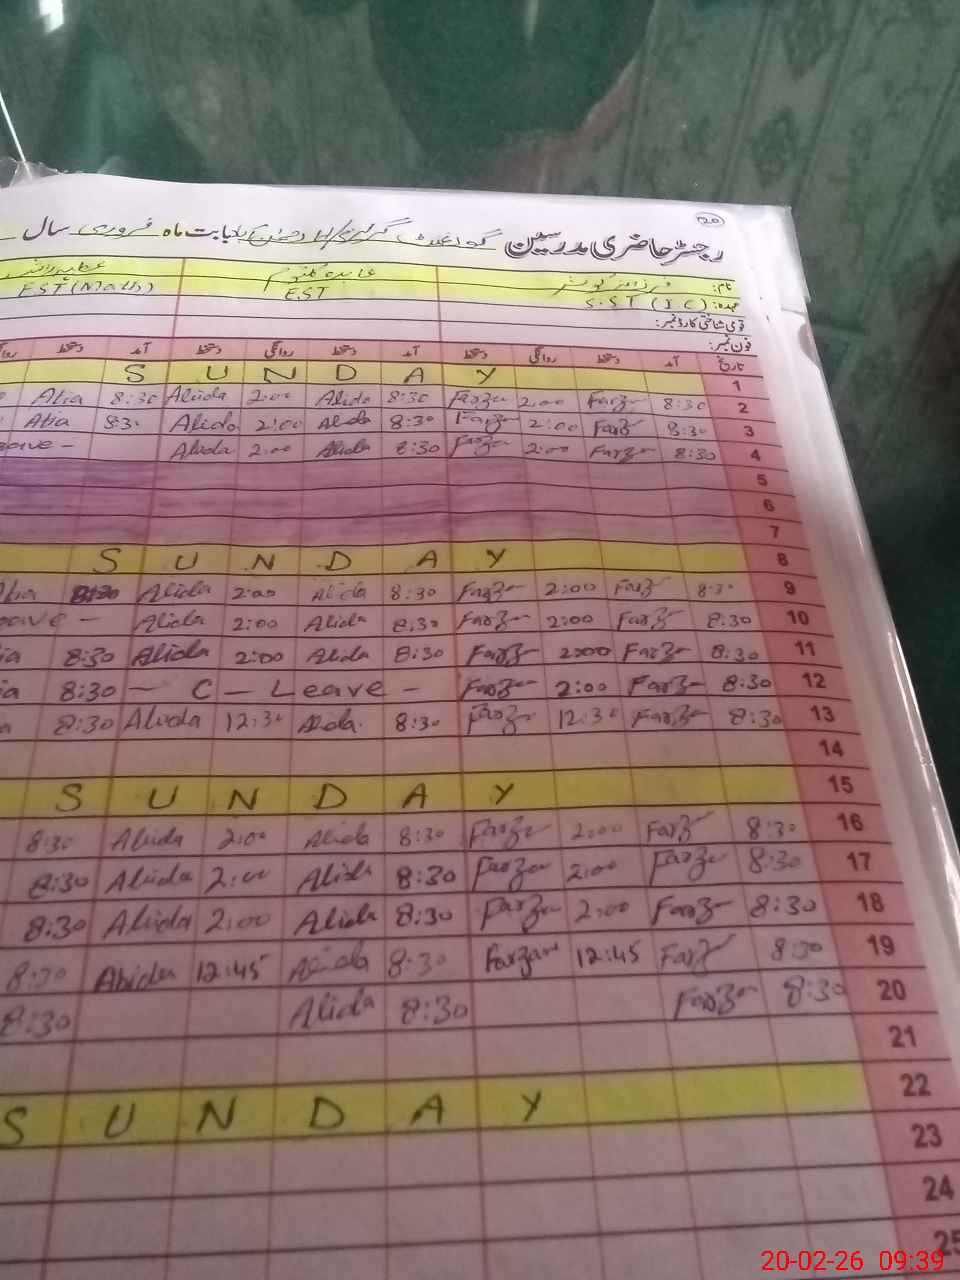 20
رجسٹر حاضری مدرسین گورنمنٹ گرلز بابت ماہ فروری سال
نام: فرزانہ کوثر عابدہ کلثوم
عہدہ: S.ST (I.C) EST EST (Maths)
قومی شناختی کارڈ نمبر:
فون نمبر:
تاریخ آمد دستخط روانگی دستخط آمد دستخط روانگی دستخط آمد دستخط
S U N D A Y 1
Atia 8:30 Abida 2:00 Abida 8:30 Farza 2:00 Farza 8:30 2
Atia 8:30 Abida 2:00 Abida 8:30 Farza 2:00 Farza 8:30 3
Leave - Abida 2:00 Abida 8:30 Farza 2:00 Farza 8:30 4
5
6
7
S U N D A Y 8
Atia 8:30 Abida 2:00 Abida 8:30 Farza 2:00 Farza 8:30 9
Leave - Abida 2:00 Abida 8:30 Farza 2:00 Farza 8:30 10
8:30 Abida 2:00 Abida 8:30 Farza 2:00 Farza 8:30 11
8:30 - C - Leave - Farza 2:00 Farza 8:30 12
8:30 Abida 12:30 Abida 8:30 Farza 12:30 Farza 8:30 13
14
S U N D A Y 15
8:30 Abida 2:00 Abida 8:30 Farza 2:00 Farza 8:30 16
8:30 Abida 2:00 Abida 8:30 Farza 2:00 Farza 8:30 17
8:30 Abida 2:00 Abida 8:30 Farza 2:00 Farza 8:30 18
8:30 Abida 12:45 Abida 8:30 Farzan 12:45 Farza 8:30 19
8:30 Abida 8:30 Farza 8:30 20
21
S U N D A Y 22
23
24
25
20-02-26 09:39